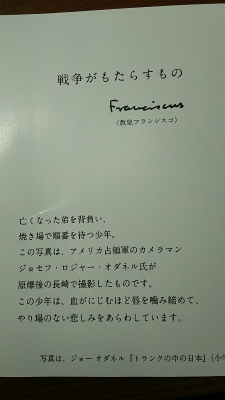 戦争がもたらすもの
Franciscus
(教皇フランシスコ)
亡くなった弟を背負い、
焼き場で順番を待つ少年。
この写真は、アメリカ占領軍のカメラマン
ジョセフ・ロジャー・オダネル氏が
原爆後の長崎で撮影したものです。
この少年は、血がにじむほど唇を噛み締めて、
やり場のない悲しみをあらわしています。
写真は、ジョー オダネル『トランクの中の日本』(小学